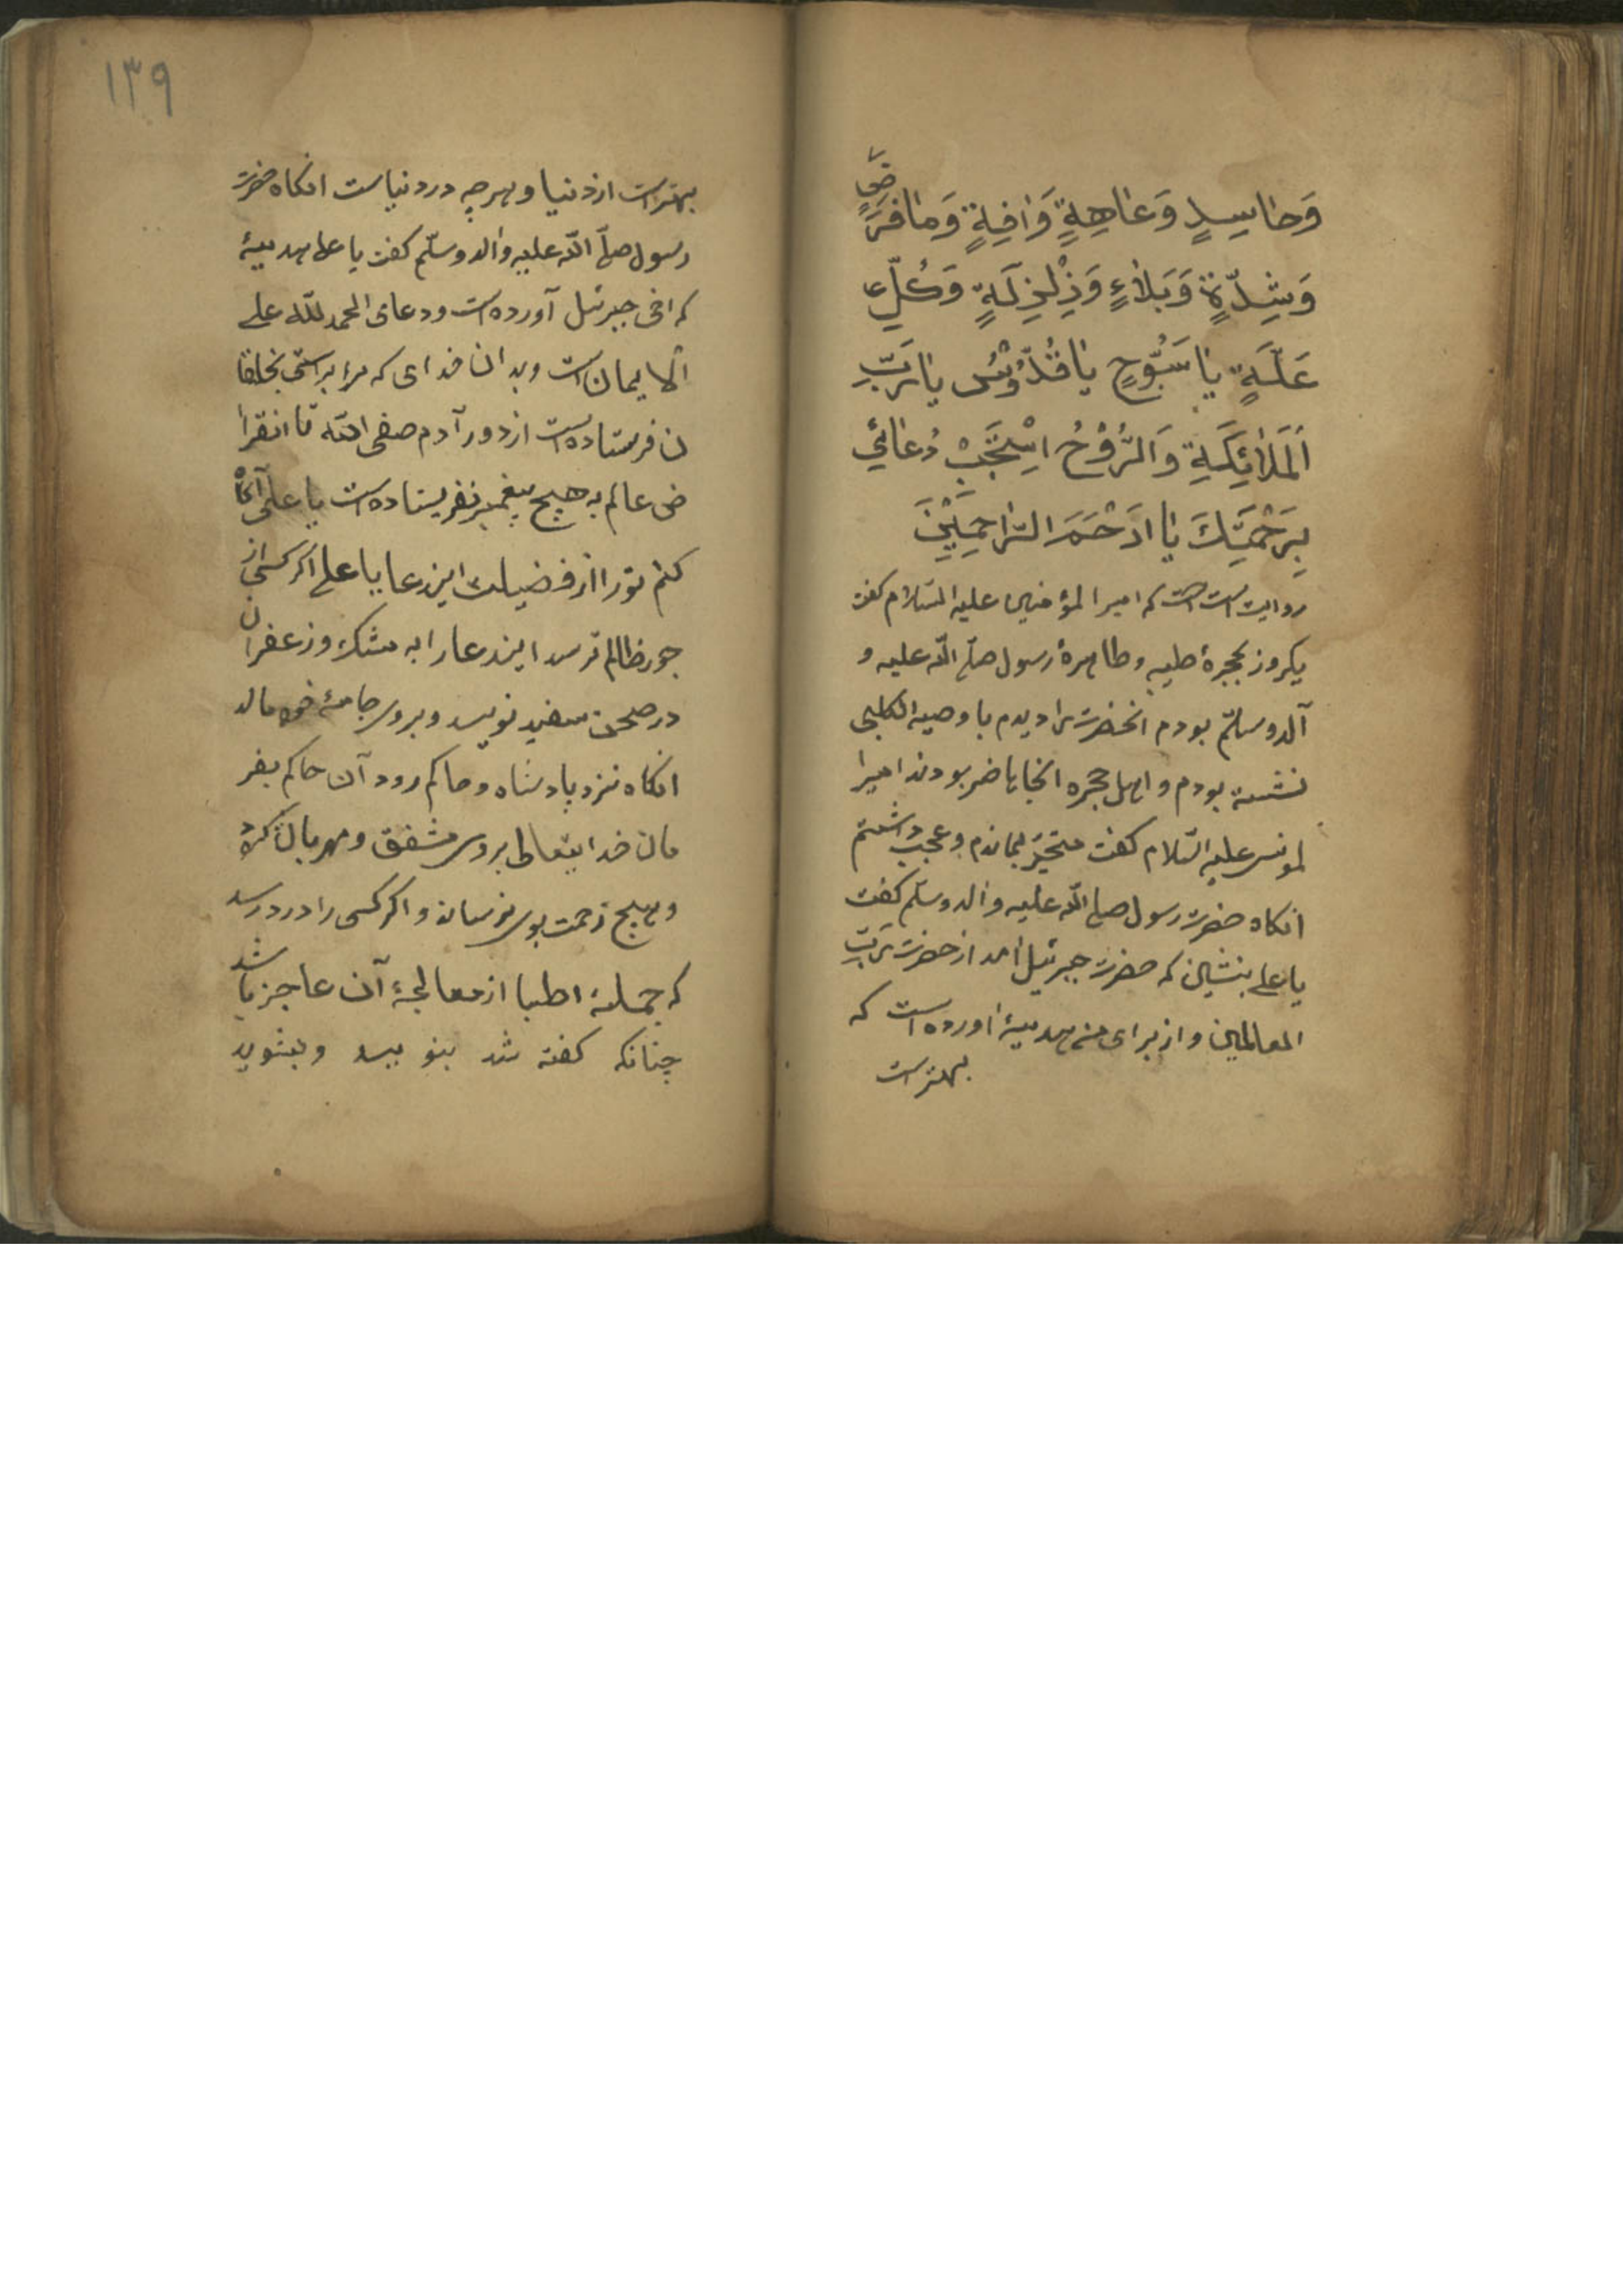 وَحٰاسِدٍ وَعٰاهِةٍ وَاٰفِةٍ وَمٰا فَرَضٍ
وَشِدّةٍ وَبَلٰاءٍ وَزِلْزِلَةٍ وَكُلِّ
عَلّةٍ يٰا سَبُّوحٍ يٰا قُدُّوْسُ يٰا رَبِّ
اَلْمَلٰائِكَةِ وَالرُّوْحُ اِسْتَجَبْ دُعٰائِي
بِرَحْمَتِكَ يٰا اَرْحَمَ الرّٰاحِمِيْنَ
روايت است كه امير المؤمنين عليه السّلام كفت
يكروز بحجرهٔ طيبه وطاهرهٔ رسول صلّى الله عليه و
آله وسلّم بودم انحضرت را ديدم با وحية الكلبى
نشسته بودم و اهل حجره انجا حاضر بودند اميرا
لمؤمنين عليه السّلام كفت متحيّر بماندم وعجب داشتم
انكاه حضرت رسول صلى الله عليه واله وسلّم كفت
يا على بنشين كه حضرت جبرئيل امد از حضرت ربّ
العالمين و از براى من هديهٔ اورده است كه
بهتر است
١٣٩
بهتر است از دنيا و هرچه در دنياست انكاه حضرت
رسول صلّى الله عليه واله وسلّم كفت يا على هديهٔ
كه اخى جبرئيل آورده است ودعاى الحمد لله على
الايمان است وبدان خداى كه مرا براستى بخلقا
ن فرستاده است از دور آدم صفى الله تا انقرا
ض عالم به هيچ پيغمبر نفريستاده است يا على آكاه
كنم تو را از فضيلت اين دعا يا على اكر كسى از
جور ظالم ترسد اين دعا را به مشك و زعفران
در صحن سفيد نويسد و بروى جامهٔ خود مالد
انكاه نزد پادشاه و حاكم رود آن حاكم بفر
مان خدايتعالى بروى مشفق و مهربان كردد
و هيچ زحمت بوى نرساند و اكر كسى را درد رسد
كه جملهٔ اطبا از معالجهٔ آن عاجز باشد
چنانكه كفته شد بنويسد و بشويد